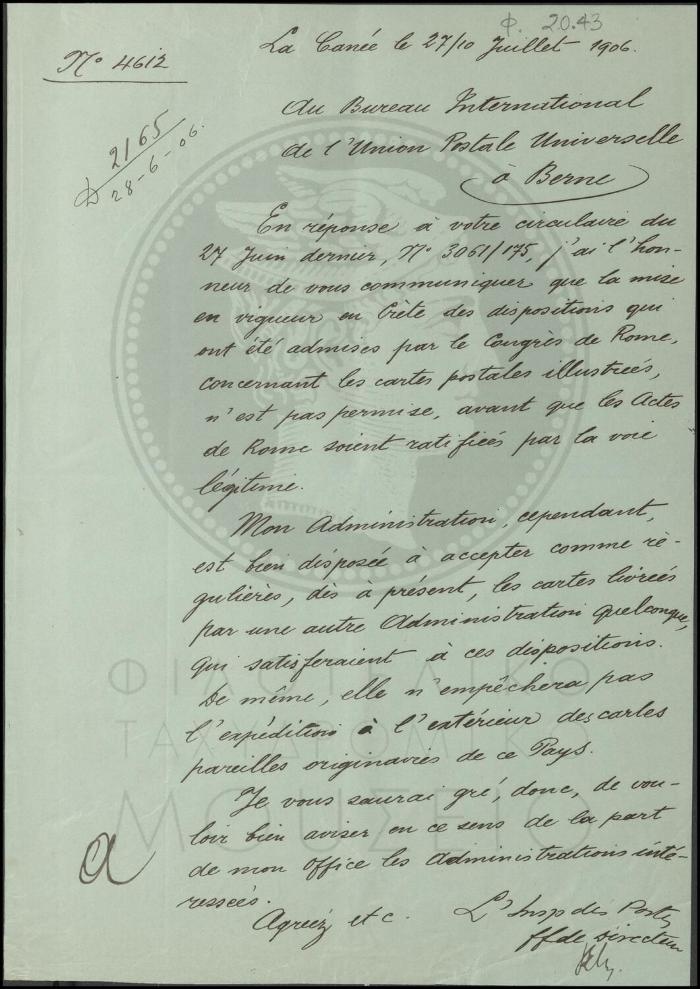 φ. 20.43
Nº 4612
La Canée le 27/10 Juillet 1906.
2165
28-6-06.
Au Bureau International
de l'Union Postale Universelle
à Berne
En réponse à votre circulaire du
27 Juin dernier, Nº 3061/175, j'ai l'hon-
neur de vous communiquer que la mise
en vigueur en Crète des dispositions qui
ont été admises par le Congrès de Rome,
concernant les cartes postales illustrées,
n'est pas permise, avant que les Actes
de Rome soient ratifiées par la voie
légitime.
Mon Administration, cependant,
est bien disposée à accepter comme ré-
gulières, dès à présent, les cartes livrées
par une autre Administration quelconque,
qui satisferaient à ces dispositions.
De même, elle n'empêchera pas
l'expédition à l'extérieur des cartes
pareilles originaires de ce Pays.
Je vous saurai gré, donc, de vou-
loir bien aviser en ce sens de la part
de mon Office les Administrations inté-
ressées.
Agréez etc.
L'Insp des Postes
ff de Directeur
ΦΙΛΟΤΕΛΙΚΟ
ΤΑΧΥΔΡΟΜΙΚΟ
ΜΟΥΣΕΙΟ